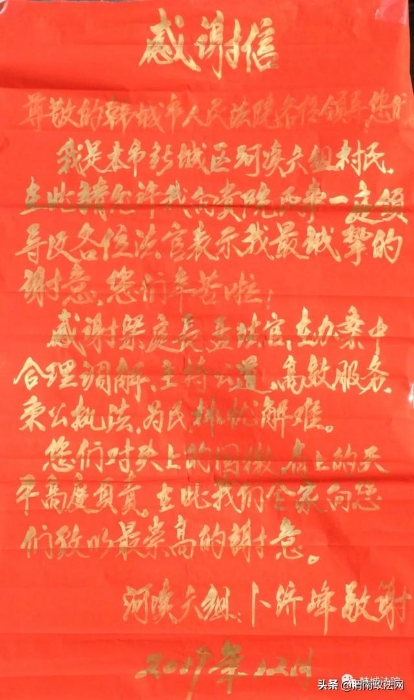 感谢信
尊敬的韩城市人民法院各位领导,您们
我是本市新城区河渎六组村民,
在此请允许我向贵院民事一庭领
导及各位法官表示我最诚挚的
谢意,您们辛苦啦!
感谢梁庭長孟法官,在办案中
合理调解、主持公道、高效服务、
秉公执法,为民排忧解难。
您们对头上的国徽,肩上的天
平高度负责。在此我们全家向您
们致以最崇高的謝意。
河渎六组:卜 峰敬谢
2019年12月
韩城法院
头条 @陕南政法网